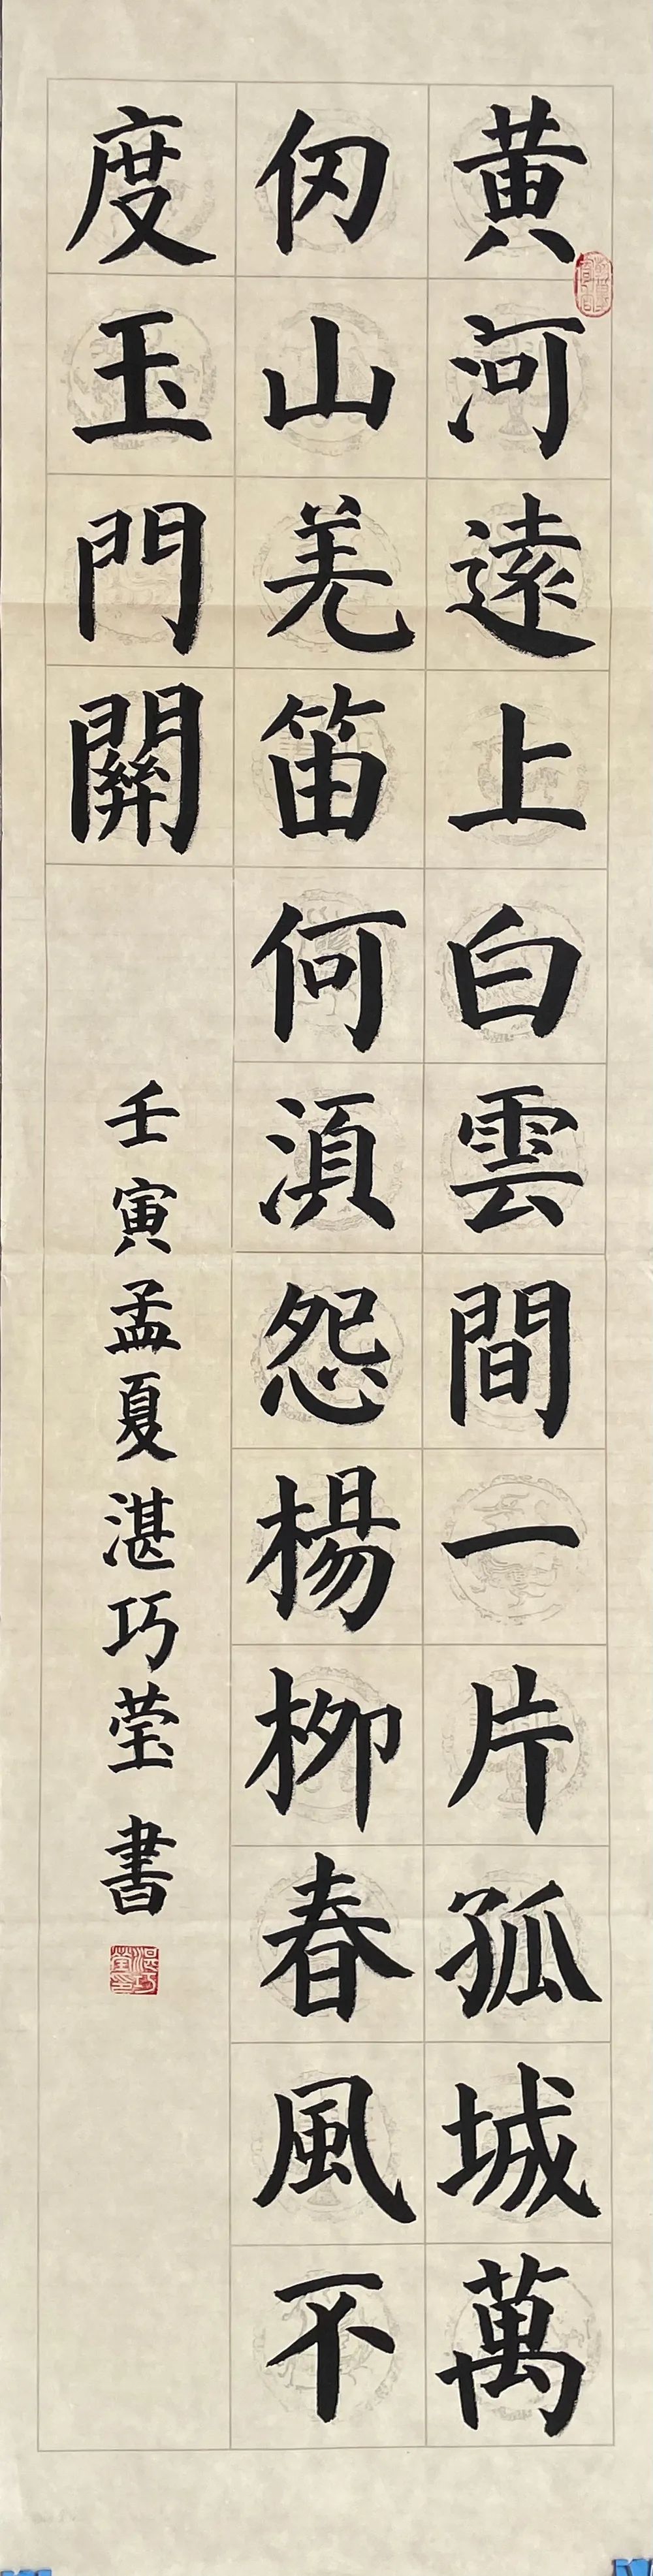 黄河遠上白雲間一片孤城萬
仞山羌笛何湏怨楊柳春風不
度玉門關
壬寅孟夏湛巧莹書
湛巧莹印